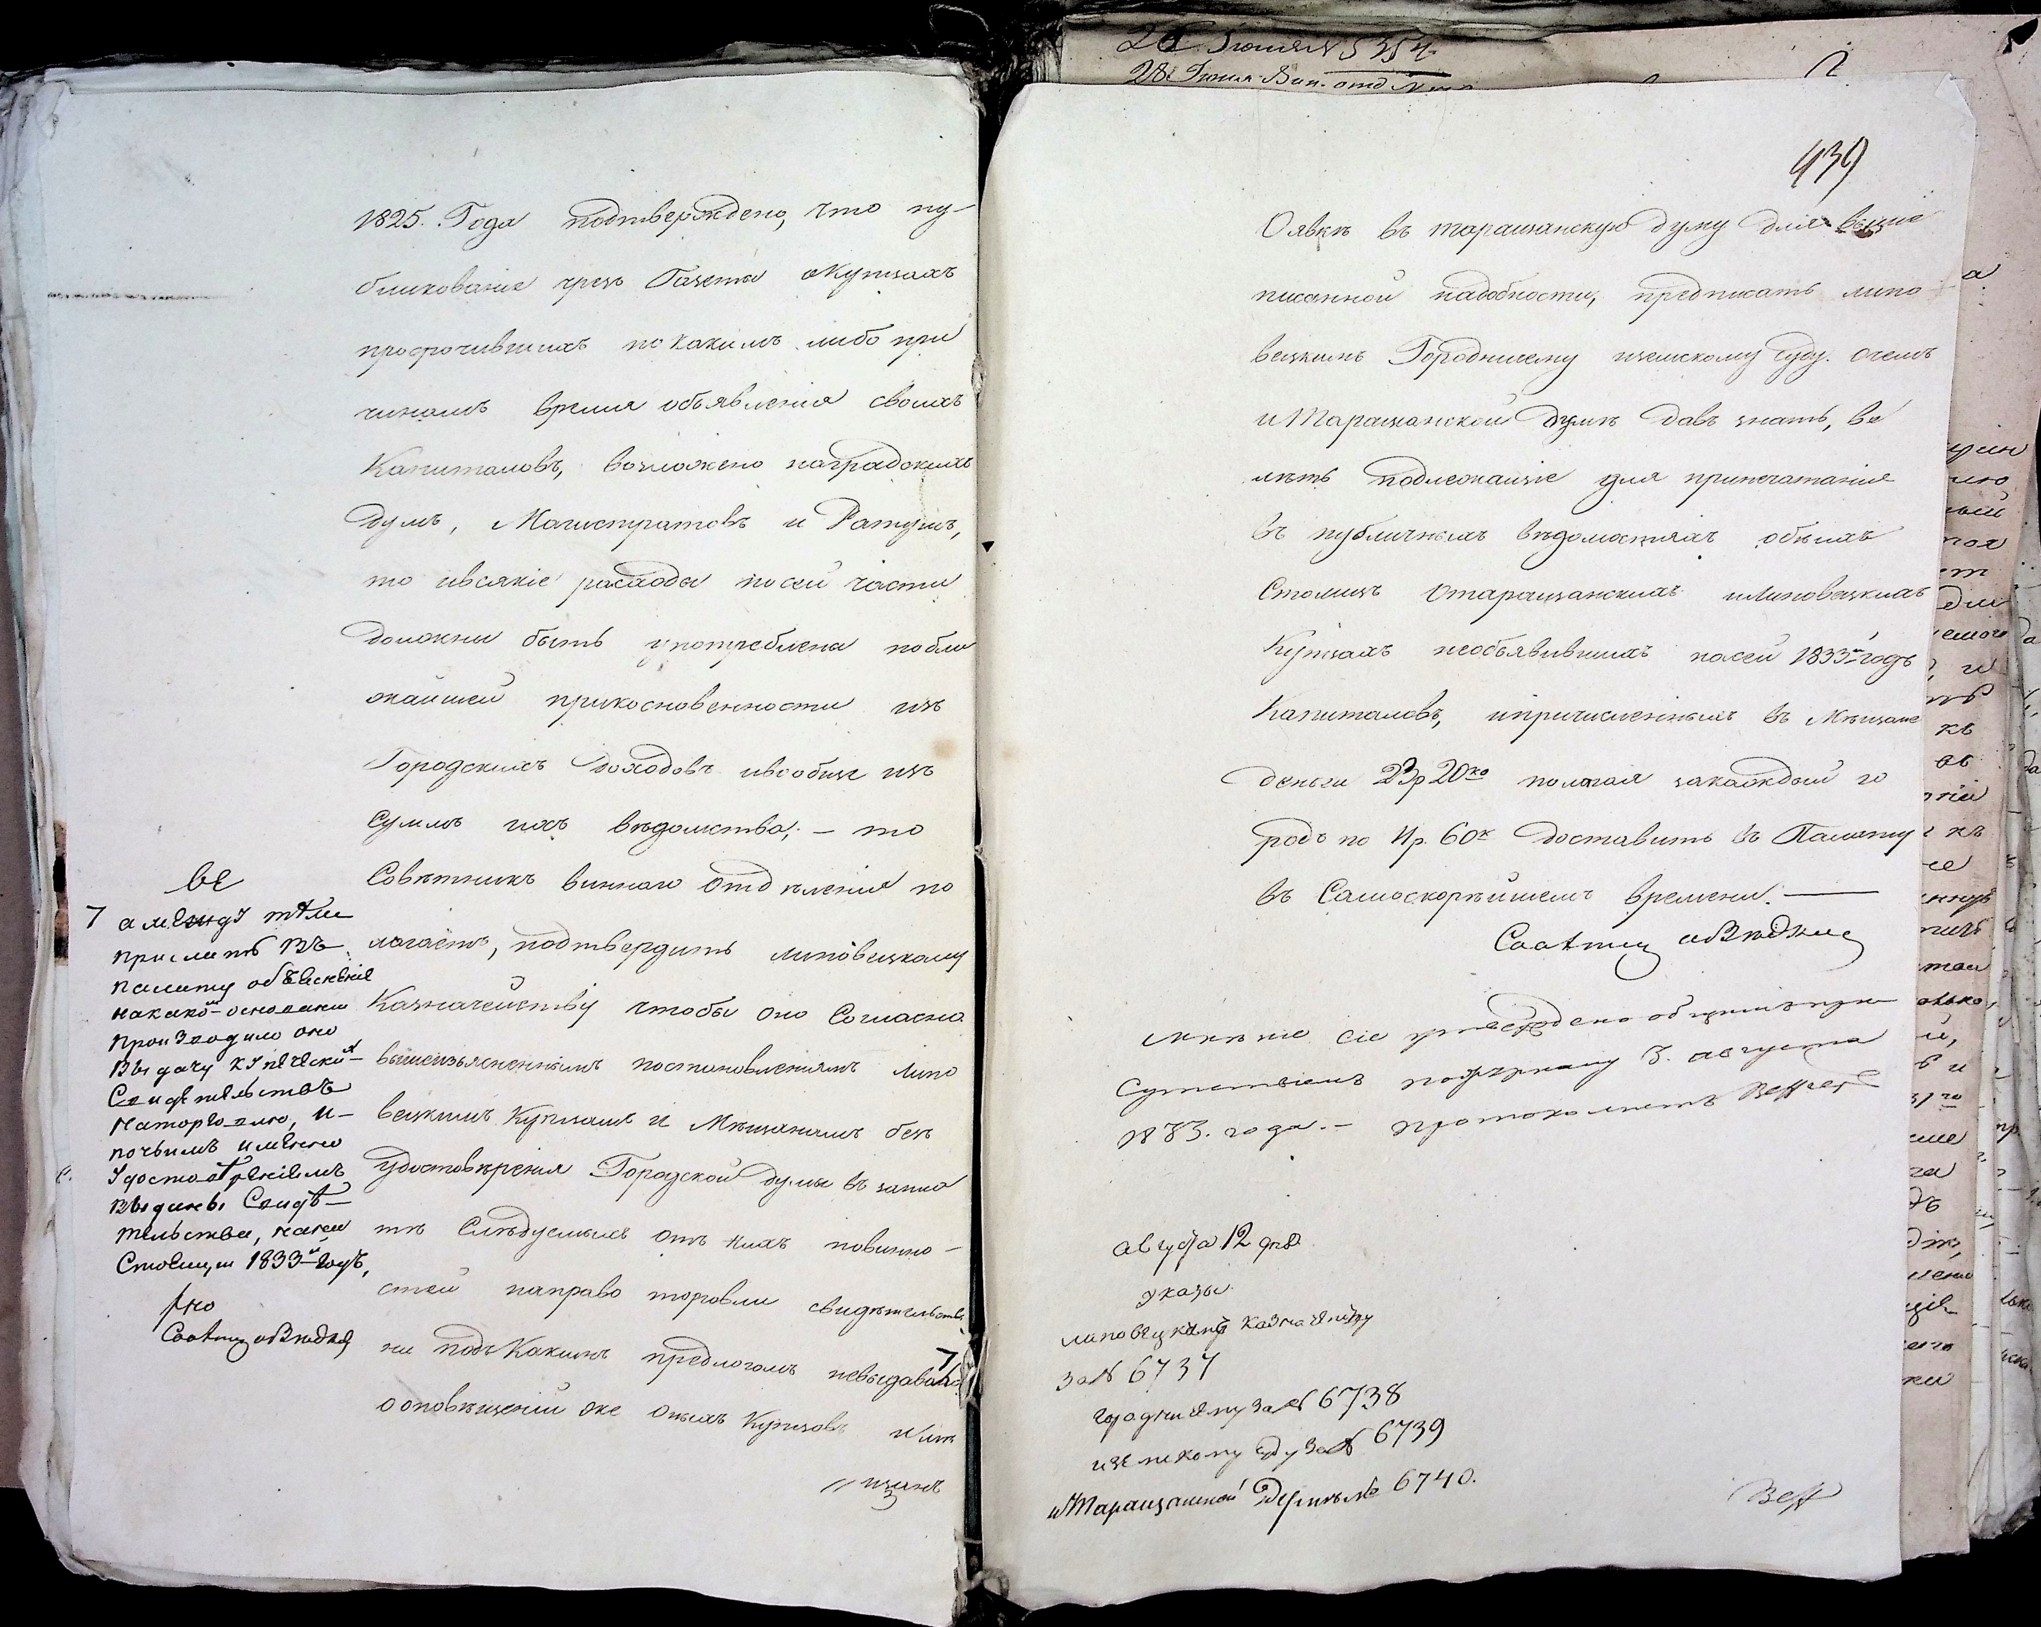 1825. Года подтверждено, что пу-
бликованіе чрезъ Газеты о Купцахъ
просрочившихъ по какимъ либо при
чинамъ время объявленія своихъ
Капиталовъ, возложено на градскихъ
думъ, Магистратовъ и Ратушъ,
то и всякіе расходы по сей части
должны быть употреблены по бли
жайшей прикосновенности изъ
Городскихъ доходовъ и вообще изъ
суммъ ихъ вѣдомства; – то
Совѣтникъ виннаго отдѣленія по
лагаетъ, подтвердить липовецкому
Казначейству чтобы оно Согласно
вышеизъясненнымъ постановленіямъ липо
вецкимъ Купцамъ и Мѣщанамъ безъ
удостовѣренія Городской думы въ запла
тѣ Слѣдуемыхъ отъ нихъ повинно-
стей на право торговли свидѣтельствъ
ни подъ Какимъ предлогомъ невыдавало
о оповѣщеніи же оныхъ Купцовъ и мѣ
щанъ
ве
7 а между тѣмъ
прислать въ
палату объясненіе
на какомъ основаніи
производило оно
выдачу купеческихъ
Свидѣтельствъ
на торговлю, и
по чьимъ именно
удостовѣреніямъ
выданы Свидѣ-
тельства, на
1833й годъ,
439
О явкѣ въ таращанскую думу для выше
писанной надобности, предписать липо
вецкимъ Городничему и земскому суду. о чемъ
и Таращанской думѣ давъ знать, ве
лѣть подлежащіе для припечатанія
въ публичныхъ вѣдомостяхъ обѣихъ
Столицъ о таращанскихъ и Липовецкихъ
Купцахъ необъявившихъ на сей 1833й годъ
Капиталовъ, и причисленныхъ въ Мѣщане
деньги 23р 20ко полагая за каждый го
родъ по 4р. 60к доставить въ Палату
въ Самоскорѣйшемъ времени. —
Мнѣніе сіе утверждено общимъ при
сутствіемъ по журналу 3. августа
1833. года. –
августа 12 дня
указы
липовецкому казначейству
за № 6737
городничему за № 6738
и земскому суду за № 6739
и Таращанской Думѣ за № 6740.